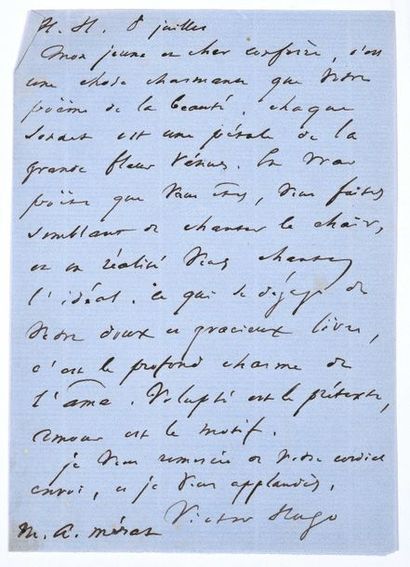 H. H. 8 juillet
Mon jeune et cher confrère, c'est
une chose charmante que votre
poème de la beauté. chaque
sonnet est une pétale de la
grande fleur Vénus. En vrai
poëte que vous êtes, vous faites
semblant de chanter la chair,
et en réalité vous chantez
l'idéal. ce qui se dégage de
votre doux et gracieux livre,
c'est le profond charme de
l'âme. Volupté est le prétexte,
amour est le motif.
je vous remercie de votre cordial
envoi, et je vous applaudis.
Victor Hugo
M. A. Mérat